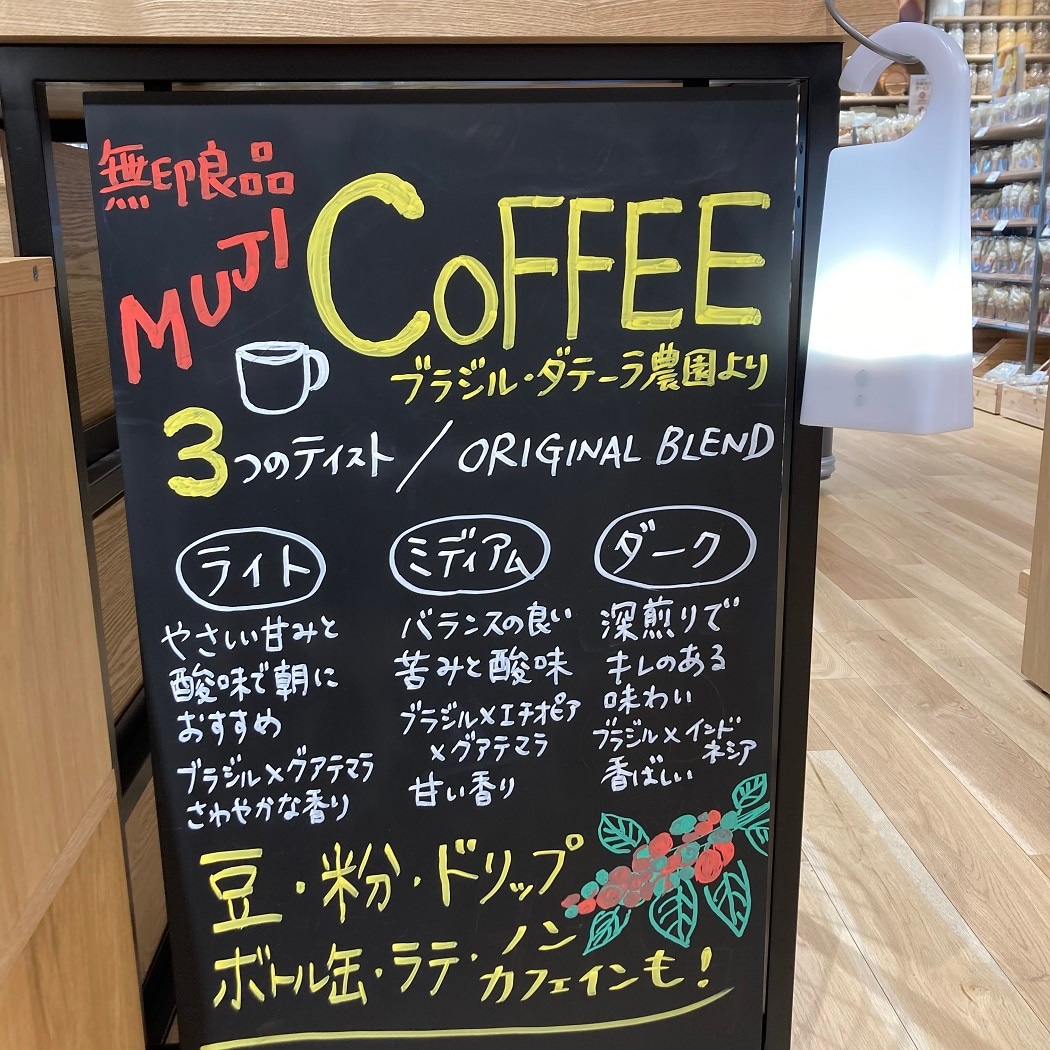 無印良品
MUJI
COFFEE
ブラジル・ダテーラ農園より
3つのテイスト / ORIGINAL BLEND
ライト
やさしい甘みと
酸味で朝に
おすすめ
ブラジル×グアテマラ
さわやかな香り
ミディアム
バランスの良い
苦みと酸味
ブラジル×エチオピア
×グアテマラ
甘い香り
ダーク
深煎りで
キレのある
味わい
ブラジル×インド
ネシア
香ばしい
豆・粉・ドリップ
ボトル缶・ラテ・ノン
カフェインも!